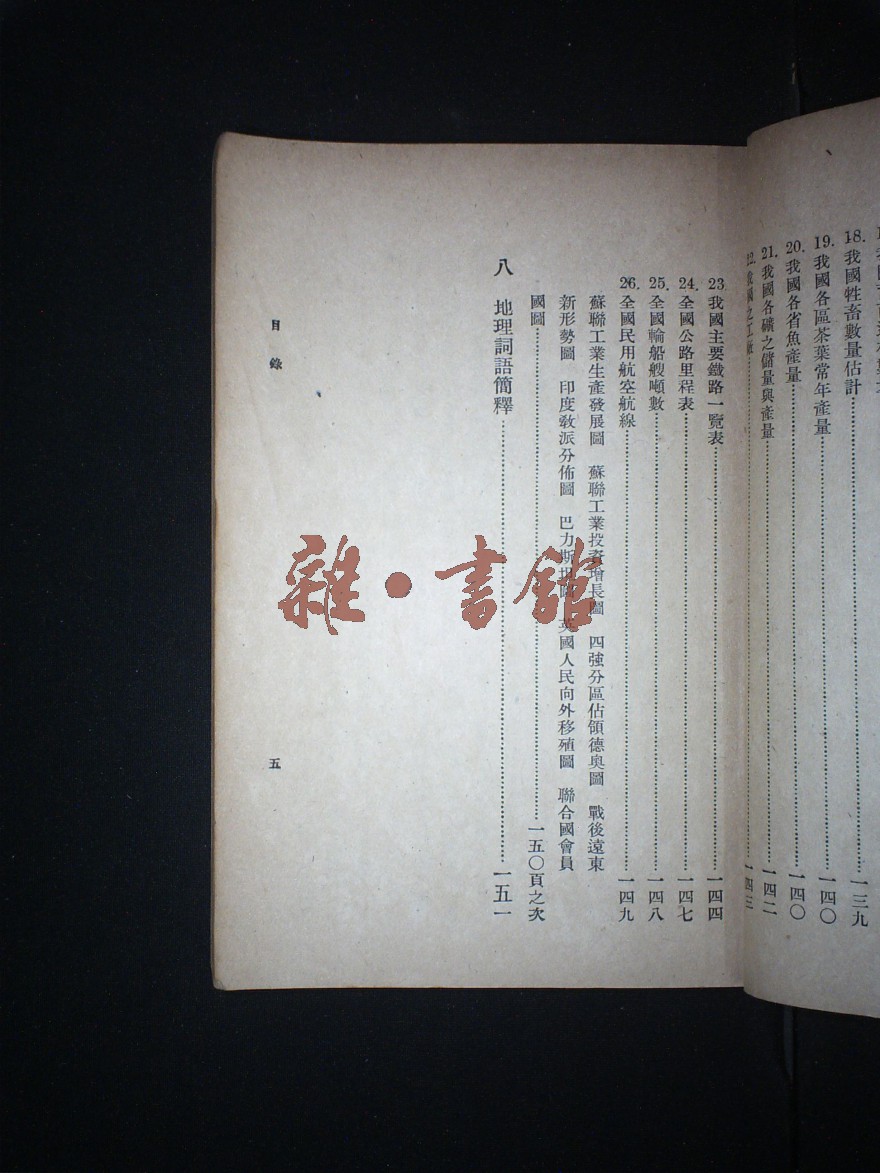 18. 我國牲畜數量估計……一三九
19. 我國各區茶葉常年產量……一四〇
20. 我國各省魚產量……一四〇
21. 我國各礦之儲量與產量……一四二
22. 我國之工廠……一四三
23. 我國主要鐵路一覽表……一四四
24. 全國公路里程表……一四七
25. 全國輪船艘噸數……一四八
26. 全國民用航空航線……一四九
蘇聯工業生產發展圖 蘇聯工業投資增長圖 四強分區佔領德奧圖 戰後遠東
新形勢圖 印度敎派分佈圖 巴力斯坦圖 英國人民向外移殖圖 聯合國會員
國圖……一五〇頁之次
八 地理詞語簡釋……一五一
目錄 五
雜·書館